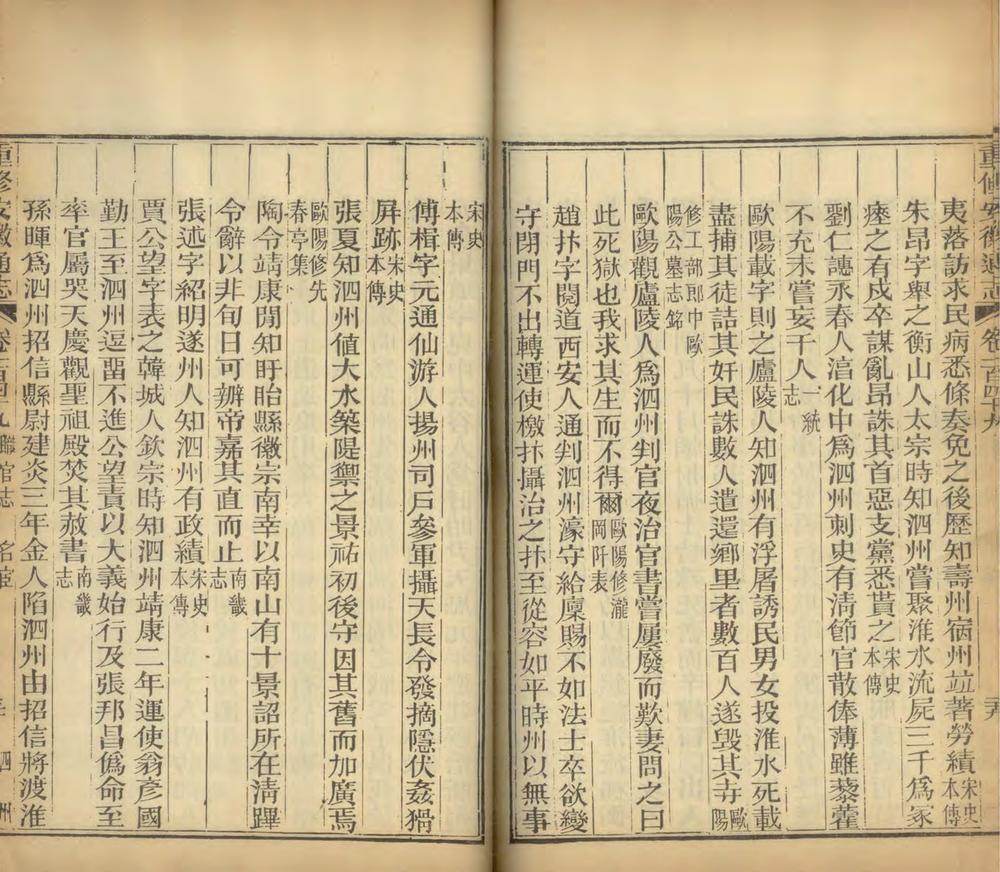 重修安徽通志 卷一百四十九
夷落訪求民病悉條奏免之後歷知壽州宿州竝著勞績宋史本傳
朱昂字舉之衡山人太宗時知泗州嘗聚淮水流屍三千爲冢
瘞之有戍卒謀亂昂誅其首惡支黨悉貰之宋史本傳
劉仁譓永春人淯化中爲泗州刺史有淸節官散俸薄雖藜藿
不充未嘗妄干人一統志
歐陽載字則之廬陵人知泗州有浮屠誘民男女投淮水死載
盡捕其徒詰其奸民誅數人遣還鄉里者數百人遂毁其寺歐陽
修工部郎中歐陽公墓志銘
歐陽觀廬陵人爲泗州判官夜治官書嘗屢廢而歎妻問之曰
此死獄也我求其生而不得爾歐陽修瀧岡阡表
趙抃字閱道西安人通判泗州濠守給廩賜不如法士卒欲變
守閉門不出轉運使檄抃攝治之抃至從容如平時州以無事
宋史本傳
傅楫字元通仙游人揚州司戶參軍攝天長令發摘隱伏姦猾
屛跡宋史本傳
張夏知泗州値大水築隄禦之景祐初後守因其舊而加廣焉
歐陽修先春亭集
陶令靖康閒知盱眙縣徽宗南幸以南山有十景詔所在淸蹕
令辭以非旬日可辨帝嘉其直而止南畿志
張述字紹明遂州人知泗州有政績宋史本傳
賈公望字表之韓城人欽宗時知泗州靖康二年運使翁彥國
勤王至泗州逗畱不進公望責以大義始行及張邦昌僞命至
率官屬哭天慶觀聖祖殿焚其赦書南畿志
孫暉爲泗州招信縣尉建炎三年金人陷泗州由招信將渡淮
重修安徽通志 卷一百四十九 職官志 名宦 泗州